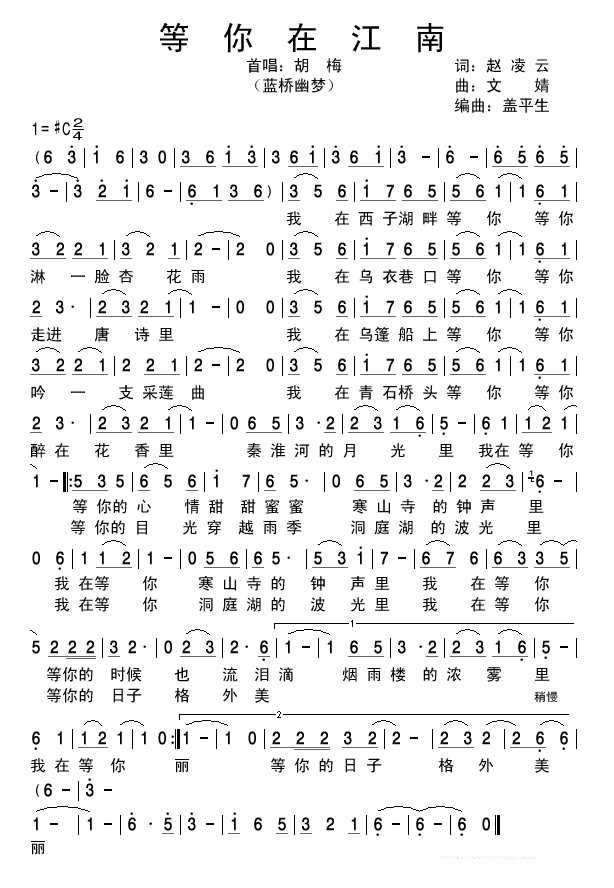 等你在江南
首唱：胡梅
（蓝桥幽梦）
词：赵凌云
曲：文婧
编曲：盖平生
1=#C 2/4
(6 3|1 6|3 0|3 6 1 3|3 6 1|3 6 1|3 -|6 -|6 5 6 5|
3 -|3 2 1|6 -|6 1 3 6)|3 5 6|1 7 6 5|5 6 1|1 6 1|
我 在西子湖畔等 你 等你
3 2 2 1|3 2 1|2 -|2 0|3 5 6|1 7 6 5|5 6 1|1 6 1|
淋 一脸杏 花雨 我 在乌衣巷口等 你 等你
2 3·|2 3 2 1|1 -|0 0|3 5 6|1 7 6 5|5 6 1|1 6 1|
走进 唐 诗里 我 在乌篷船上等 你 等你
3 2 2 1|2 2 1|2 -|2 0|3 5 6|1 7 6 5|5 6 1|1 6 1|
吟 一 支采莲 曲 我 在青石桥头等 你 等你
2 3·|2 3 2 1|1 -|0 6 5|3 ·2|2 3 1 6|5 -|6 1|1 2 1|
醉在 花 香里 秦淮河的月 光 里 我在等 你
1 -|:5 3 5|6 5 6|1 7|6 5·|0 6 5|3·2|2 2 3|6 -|
等你的心 情甜 甜蜜蜜 寒山寺 的钟声 里
等你的目 光穿 越雨季 洞庭湖 的波光 里
0 6|1 1 2|1 -|0 5 6|6 5·|5 3 1|7 -|6 7 6|6 3 3 5|
我在等 你 寒山寺的 钟 声里 我 在等你
我在等 你 洞庭湖的 波 光里 我 在等你
5 2 2 2|3 2·|0 2 3|2·6|1 -|1 -|3 5 6|3 ·2|2 3 1 6|5 -|
1
等你的 时候 也 流泪滴 烟雨楼的浓 雾 里
等你的 日子 格 外美
稍慢
6 1|1 2 1|1 0:|1 -|1 0|2 2 2 3 2|2 -|2 2 3|2 6 6|
2
我在等 你 丽 等你的日子 格 外 美
(6 -|3 -
1 -|1 -|6 3·|5 3|3 -|1 6 5|6 3|2 1|6 -|6 0|
丽